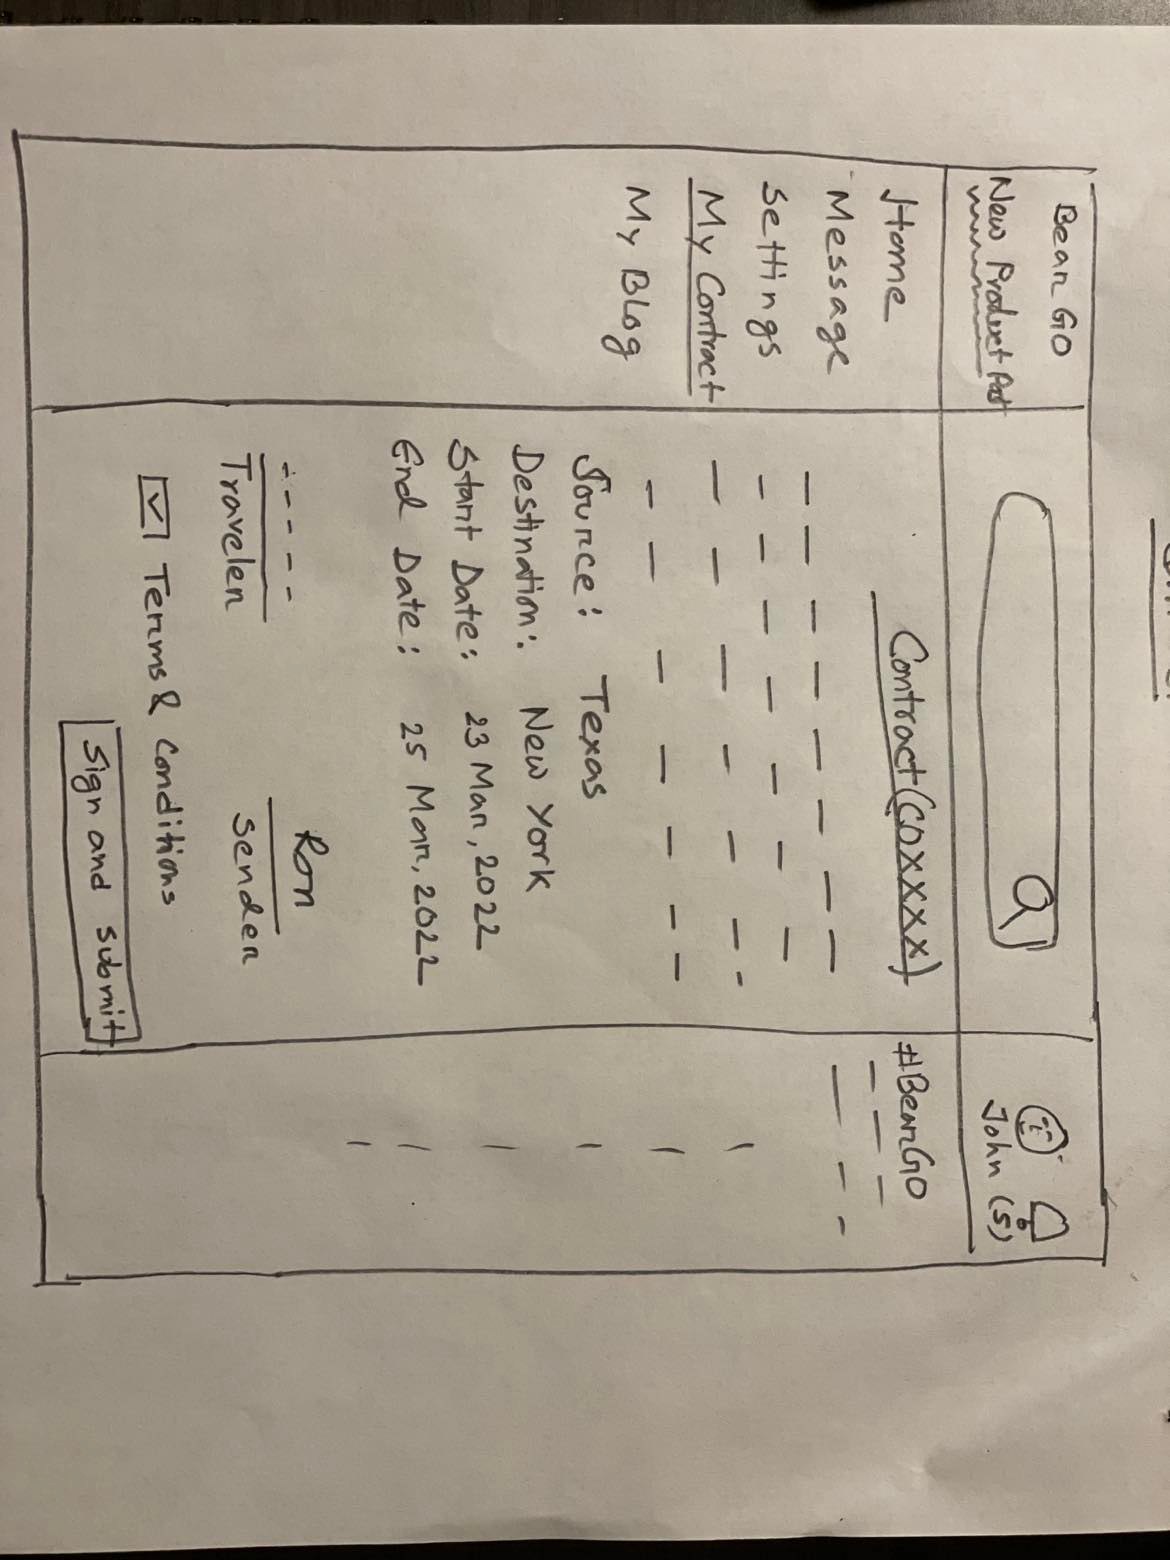 Bear GO
New Product Post
John (5)
Home
Message
Settings
My Contract
My Blog
Contract (COXXXX)
Source: Texas
Destination: New York
Start Date: 23 Mar, 2022
End Date: 25 Mar, 2022
Traveler
Ron
Sender
Terms & Conditions
Sign and Submit
#BearGO